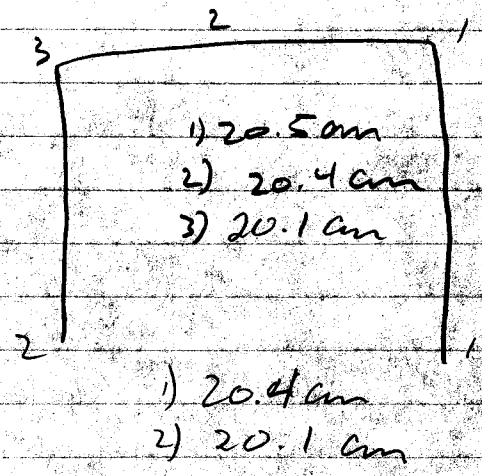 2
3 1
1) 20.5 cm
2) 20.4 cm
3) 20.1 cm
2 1
1) 20.4 cm
2) 20.1 cm